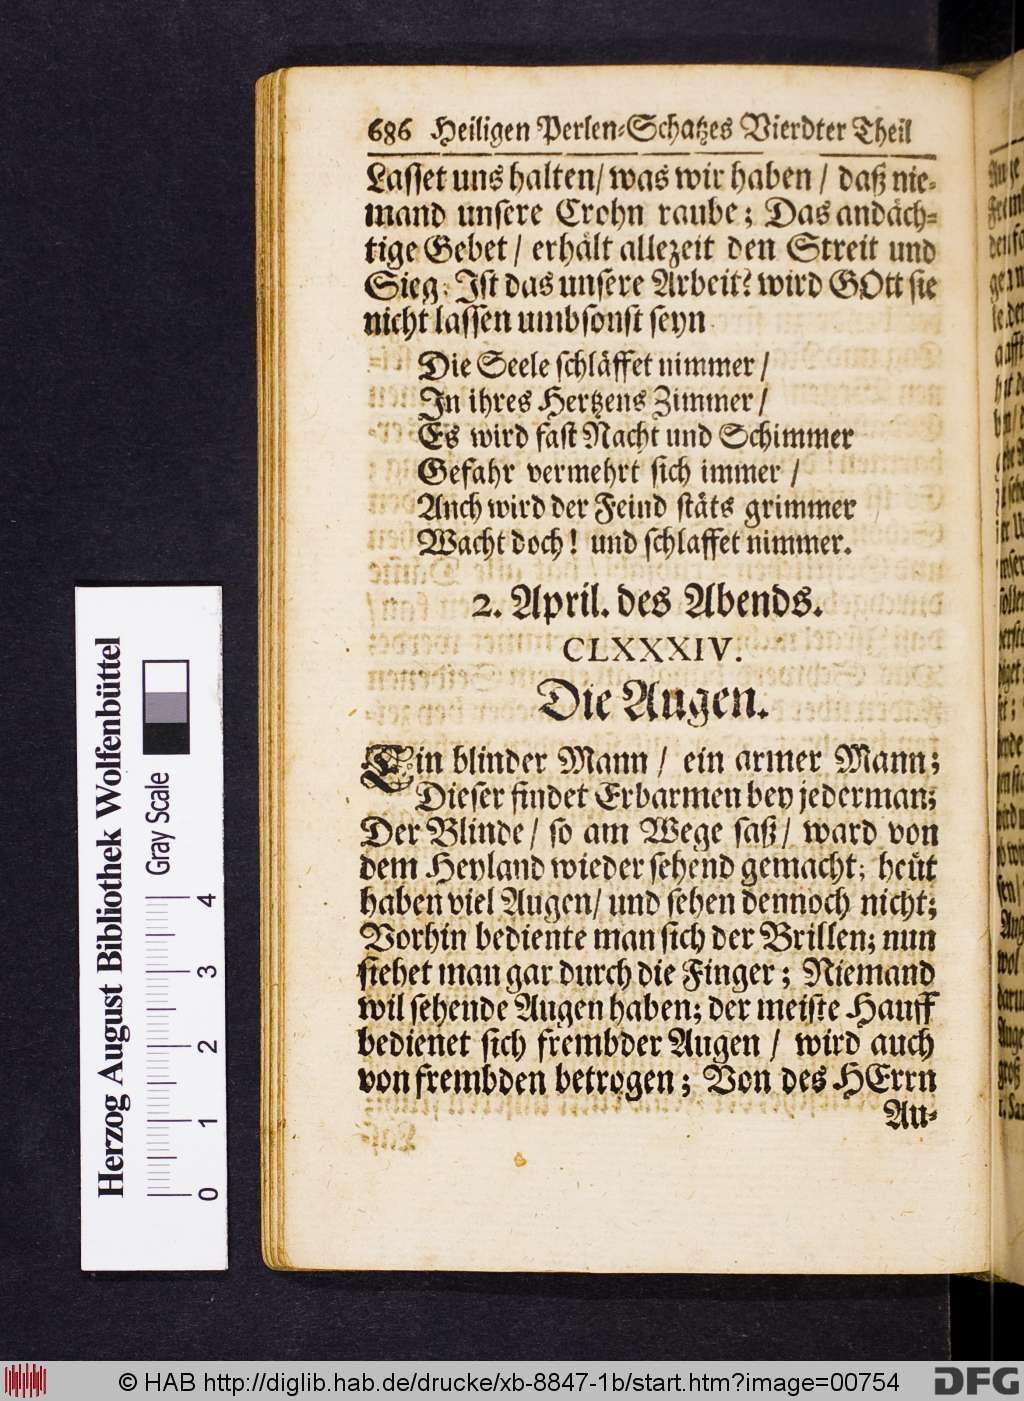 686 Heiligen Perlen-Schatzes Vierdter Theil
Lasset uns halten/ was wir haben / daß nie-
mand unsere Crohn raube; Das andäch-
tige Gebet / erhält allezeit den Streit und
Sieg; Ist das unsere Arbeit? wird GOtt sie
nicht lassen umbsonst seyn
Die Seele schläffet nimmer /
In ihres Hertzens Zimmer /
Es wird fast Nacht und Schimmer
Gefahr vermehrt sich immer /
Auch wird der Feind stäts grimmer
Wacht doch! und schlaffet nimmer.
2. April. des Abends.
CLXXXIV.
Die Augen.
Ein blinder Mann / ein armer Mann;
Dieser findet Erbarmen bey jederman;
Der Blinde / so am Wege saß / ward von
dem Heyland wieder sehend gemacht; heüt
haben viel Augen/ und sehen dennoch nicht;
Vorhin bediente man sich der Brillen; nun
siehet man gar durch die Finger; Niemand
wil sehende Augen haben; der meiste Hauff
bedienet sich frembder Augen / wird auch
von frembden betrogen; Von des HErrn
Au-
Herzog August Bibliothek Wolfenbüttel
Gray Scale
0 1 2 3 4
© HAB http://diglib.hab.de/drucke/xb-8847-1b/start.htm?image=00754
DFG